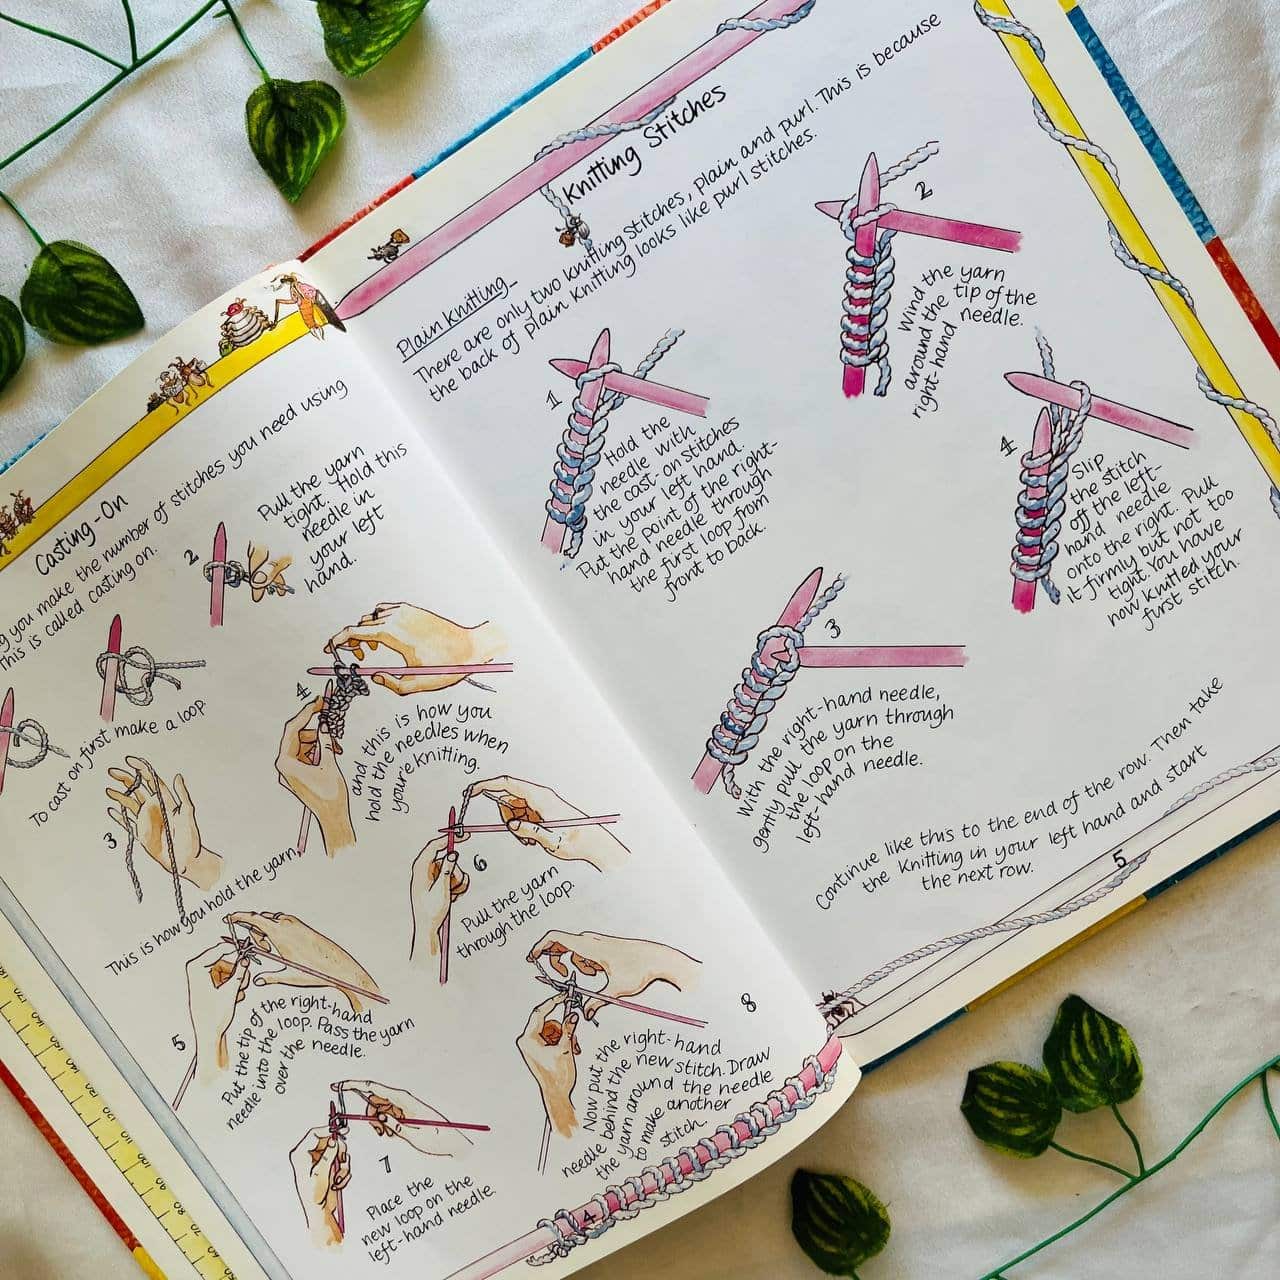 Casting-On
you make the number of stitches you need using
This is called casting on.
To cast on first make a loop.
2
Pull the yarn
tight. Hold this
needle in
your left
hand.
3
This is how you hold the yarn,
4
and this is how you
hold the needles when
you're knitting.
5
Put the tip of the right-hand
needle into the loop. Pass the yarn
over the needle.
6
Pull the yarn
through the loop.
7
Place the
new loop on the
left-hand needle.
8
Now put the right-hand
needle behind the new stitch. Draw
the yarn around the needle
to make another
stitch.
4
170
160
150
140
130
120
110
100
90
80
70
60
50
Knitting Stitches
Plain Knitting
There are only two knitting stitches, plain and purl. This is because
the back of plain knitting looks like purl stitches.
1
Hold the
needle with
the cast-on stitches
in your left hand.
Put the point of the right-
hand needle through
the first loop from
front to back.
2
Wind the yarn
around the tip of the
right-hand needle.
3
With the right-hand needle,
gently pull the yarn through
the loop on the
left-hand needle.
4
Slip
the stitch
off the left-
hand needle
onto the right. Pull
it firmly but not too
tight. You have
now knitted your
first stitch.
Continue like this to the end of the row. Then take
the knitting in your left hand and start
the next row.
5